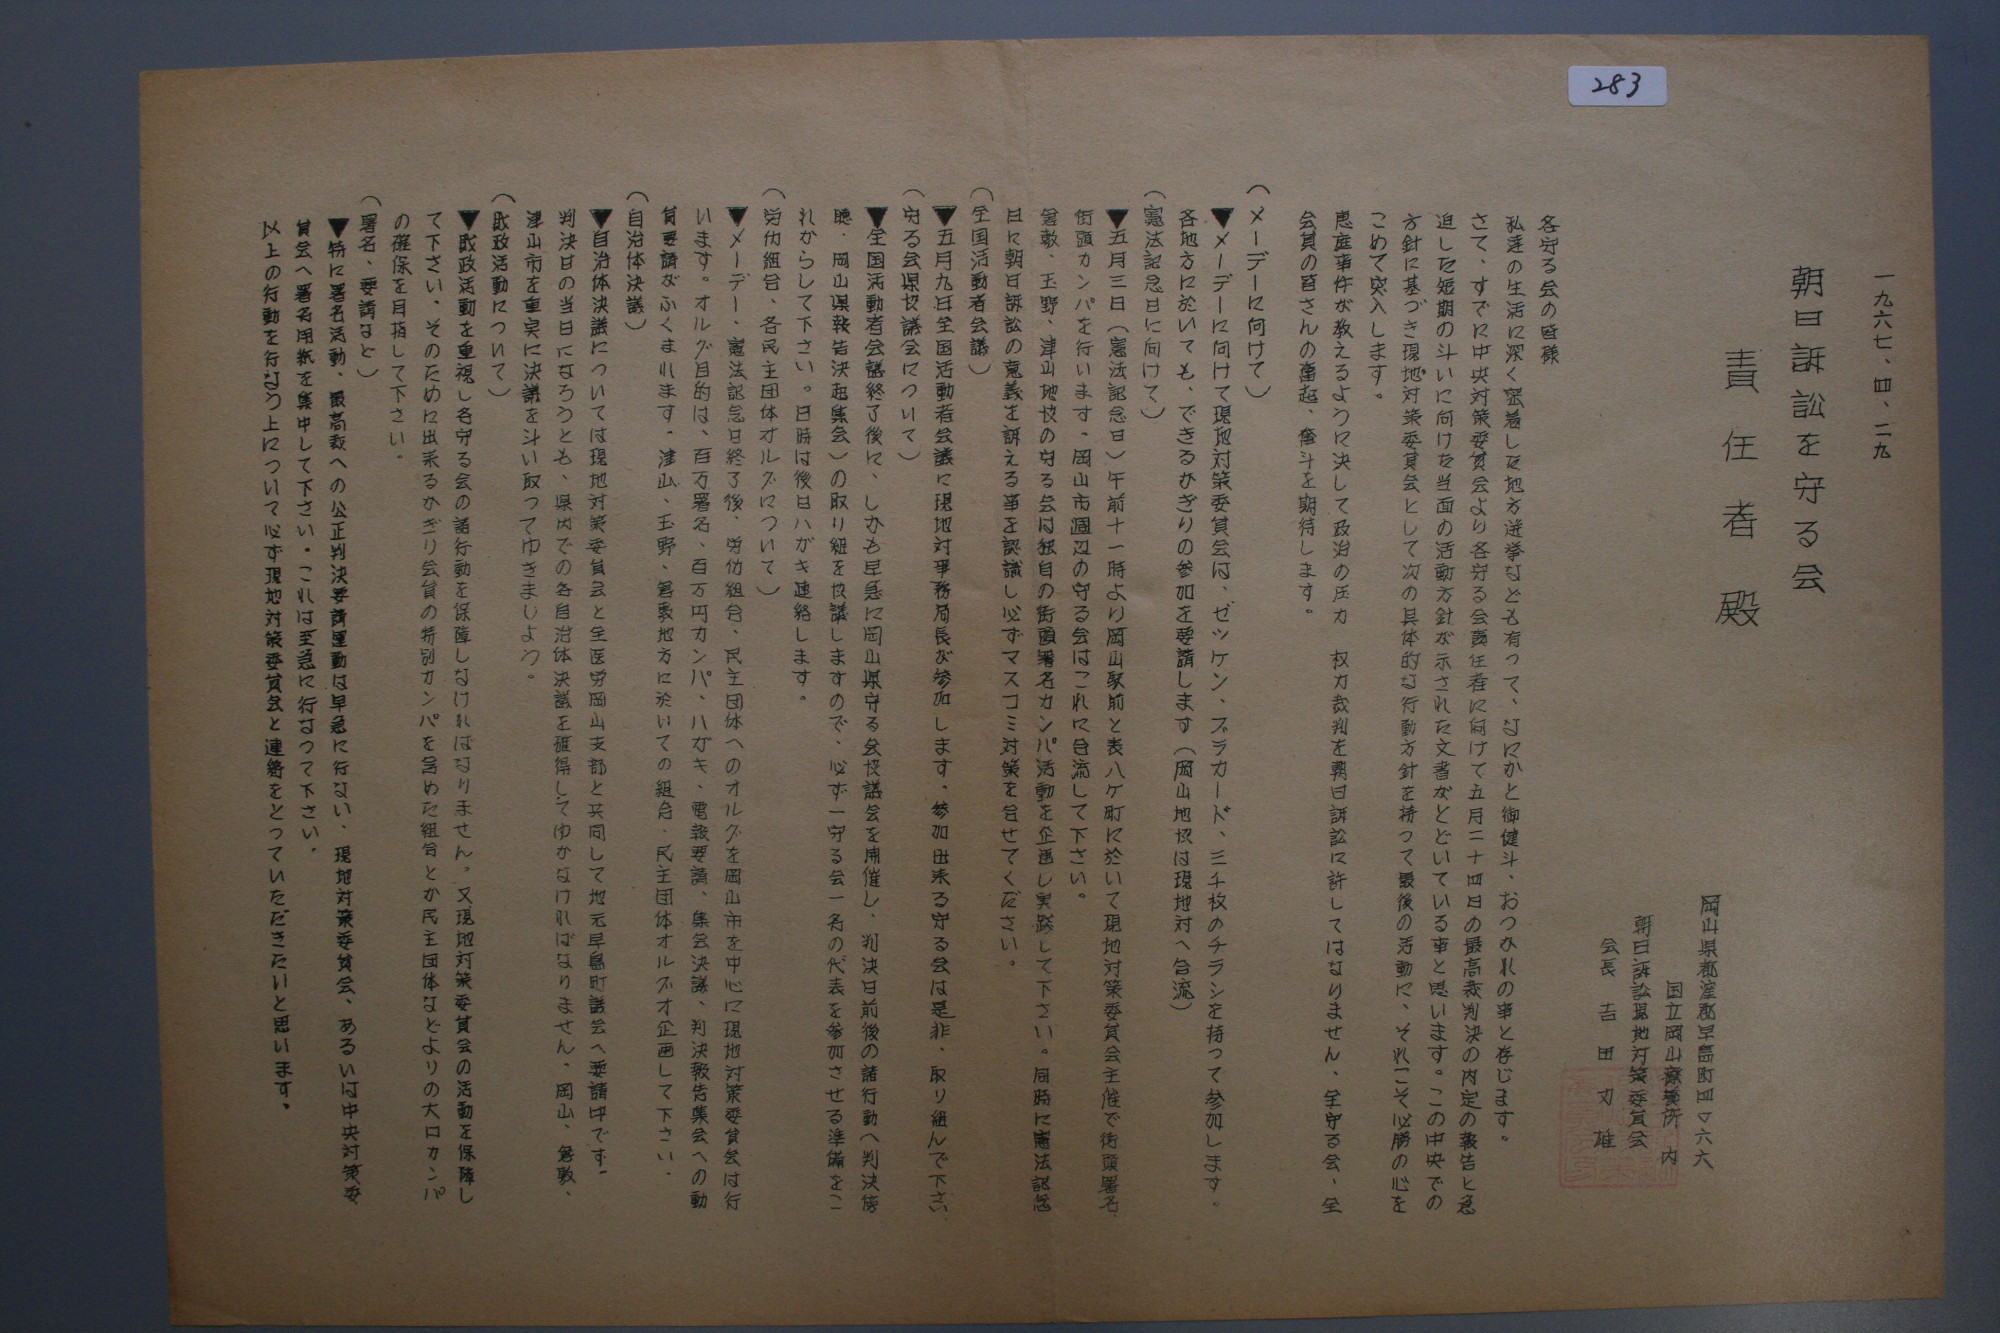 283
一九六七、四、二九
朝日訴訟を守る会
責任者殿
岡山県都窪郡早島町四〇六六
国立岡山療養所内
朝日訴訟現地対策委員会
会長 吉田刃雄
各守る会の皆様
私達の生活に深く密着した地方選挙なども有って、なにかと御健斗、おつかれの事と存じます。
さて、すでに中央対策委員会より各守る会責任者に向けて五月二十四日の最高裁判決の内定の報告と急
迫した短期の斗いに向けた当面の活動方針が示された文書がとどいている事と思います。この中央での
方針に基づき現地対策委員会として次の具体的な行動方針を持って最後の活動に、それこそ必勝の心を
こめて突入します。
恵庭事件が教えるように決して政治の圧力 权力裁判を朝日訴訟に許してはなりません、全守る会、全
会員の皆さんの奮起、奮斗を期待します。
（メーデーに向けて）
▼メーデーに向けて現地対策委員会は、ゼッケン、プラカード、三千枚のチラシを持って参加します。
各地方に於いても、できるかぎりの参加を要請します（岡山地域は現地対へ合流）
（憲法記念日に向けて）
▼五月三日（憲法記念日）午前十一時より岡山駅前と表八ケ町に於いて現地対策委員会主催で街頭署名、
街頭カンパを行います。岡山市週辺の守る会はこれに合流して下さい。
倉敷、玉野、津山地域の守る会は独自の街頭署名カンパ活動を企画し実践して下さい。同時に憲法記念
日に朝日訴訟の意義を訴える事を認識し必ずマスコミ対策を合せてください。
（全国活動者会議）
▼五月九日全国活動者会議に現地対事務局長が参加します。参加出来る守る会は是非、取り組んで下さい、
守る会県協議会について）
▼全国活動者会議終了後に、しかも早急に岡山県守る会協議会を開催し、判決日前後の諸行動へ判決傍
聴、岡山県報告決起集会）の取り組を協議しますので、必ず一守る会一名の代表を参加させる準備をこ
れからして下さい。日時は後日ハガキ連絡します。
（労仂組合、各民主団体オルグについて）
▼メーデー、憲法記念日終了後、労仂組合、民主団体へのオルグを岡山市を中心に現地対策委員会は行
います。オルグ目的は、百万署名、百万円カンパ、ハガキ、電報要請、集会決議、判決報告集会への動
員要請がふくまれます。津山、玉野、倉敷地方に於いての組合、民主団体オルグオ企画して下さい、
（自治体決議）
▼自治体決議については現地対策委員会と全医労岡山支部と共同して地元早島町議会へ要請中です。
判決日の当日になろうとも、県内での各自治体決議を確得してゆかなければなりません、岡山、倉敷、
津山市を重実に決議を斗い取ってゆきましょう。
（財政活動について）
▼財政活動を重視し各守る会の諸行動を保障しなければなりません。又現地対策委員会の活動を保障し
て下さい。そのために出来るかぎり会員の特別カンパを含めた組合とか民主団体などよりの大口カンパ
の確保を目指して下さい。
（署名、要請など）
▼特に署名活動、最高裁への公正判決要請運動は早急に行ない、現地対策委員会、あるいは中央対策委
員会へ署名用紙を集中して下さい。これは至急に行なって下さい。
以上の行動を行なう上について必ず現地対策委員会と連絡をとっていただきたいと思います。